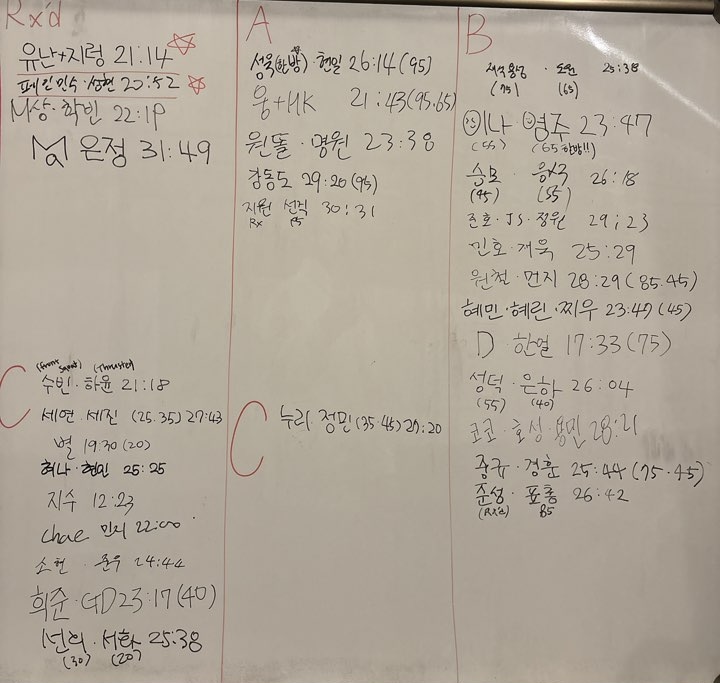 Rx'd
유난+지렁 21:14
페인민수·성현 20:52
M상·학빈 22:19
Ma 은정 31:49
A
성욱(한방)·현일 26:14(95)
웅+HK 21:43(95.65)
원똘·명원 23:38
강동도 29:20(95)
지원 선직 30:31
Rx B5
B
도원 25:38
(75) (65)
이나·영주 23:47
(55) (65한방!!)
승모 26:18
(95) (55)
준호·JS·정원 29:23
민호·재욱 25:29
원철·먼지 28:29(85.45)
혜민·혜린·찌우 23:47(45)
D·한얼 17:33(75)
성덕·은하 26:04
(55) (40)
코코·효성·용민 28:21
중규·경훈 25:44(75.45)
준성·표총 26:42
(Rx'd) B5
C
(Front Squat) (Thruster)
수빈·하윤 21:18
세연·세진 (25.35) 27:43
별 19:30(20)
허나·현민 25:25
지수 12:23
Chae 민지 22:00
소현·준우 24:44
희준·GD 23:17(40)
선희·서학 25:38
(30) (20)
C
누리·정민(35.45)27:20